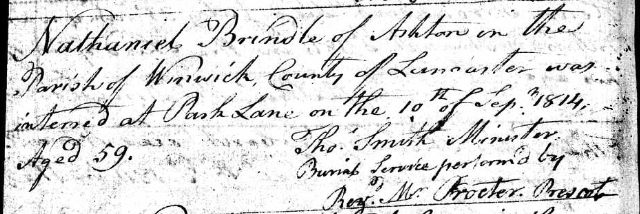 Nathaniel Brindle of Ashton in the
Parish of Winwick, County of Lancaster was
interred at Park Lane on the 10th of Sepr. 1814.
Aged 59.
Thos. Smith Minister.
Burial Service perform'd by
Revd. Mr. Procter. Prescot